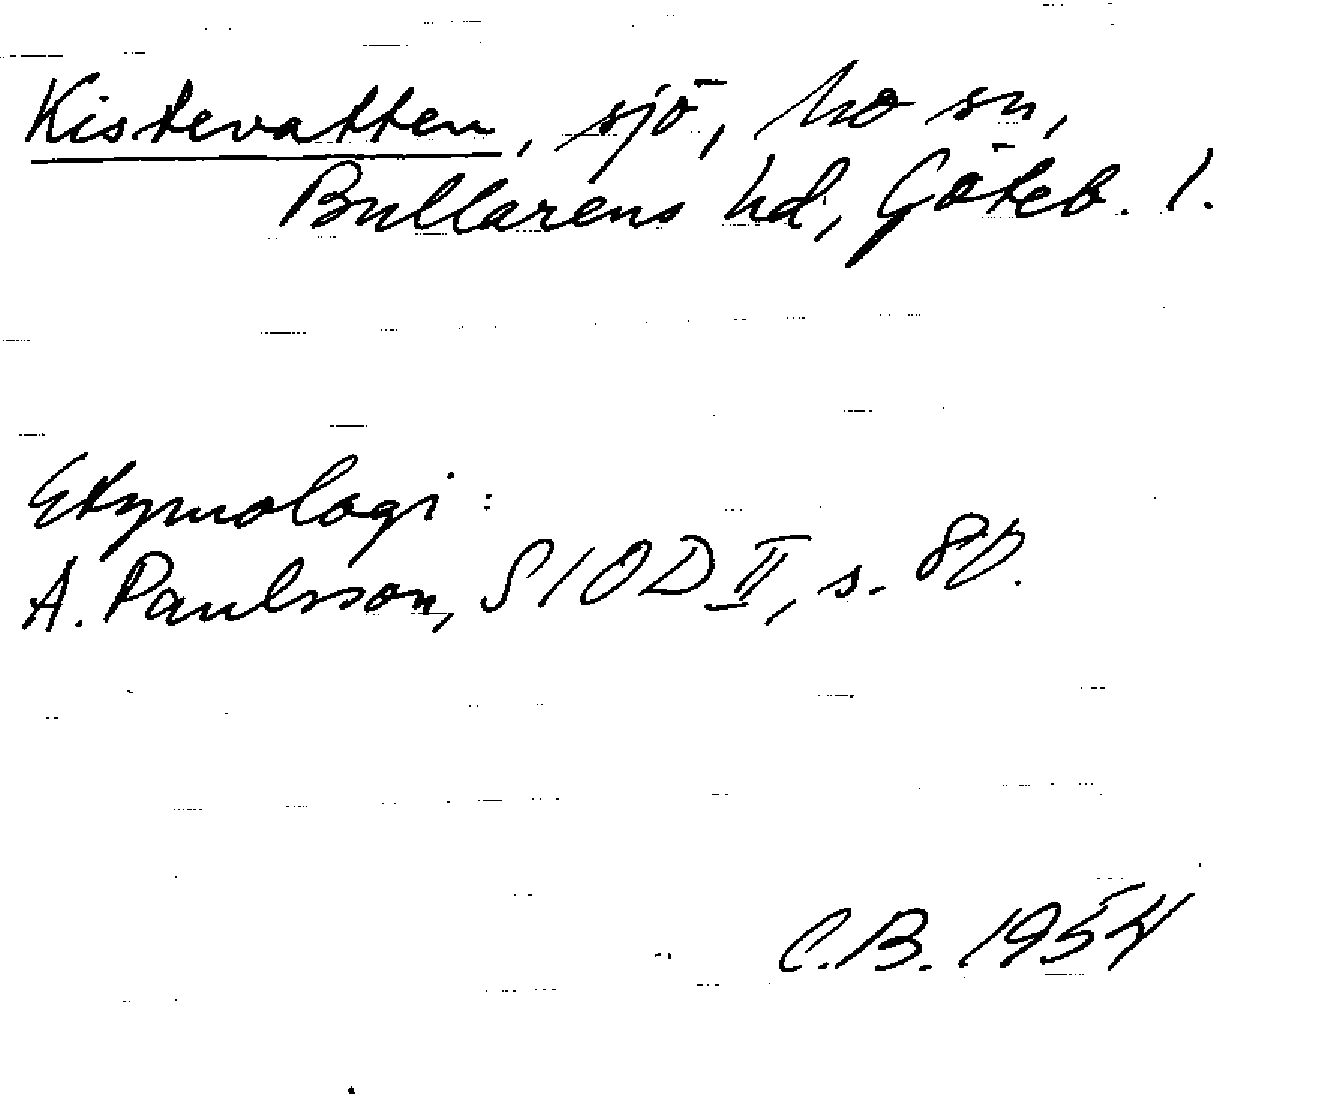 Kistevatten, sjö, Mo sn,
Bullarens hd, Göteb. l.
Etymologi:
A. Paulsson, SIOD II, s. 80.
C.B. 1954